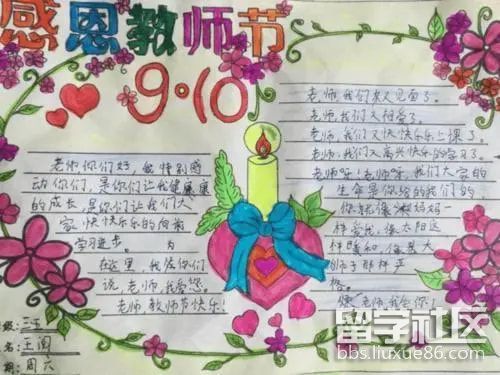 感恩教师节
9·10
老师,你们好,我特别感
动你们,是你们让我健康
的成长,是你们让我们大
家快快乐乐的向前
学习进步。为
在这里,我后你们
说老师,我爱您。
老师教师节快乐!
级:
名:王
期:周六
老师,我们又见面了。
老师,我们又相爱了。
老师,我们又快快乐乐上课了。
老师,我们又高兴快乐的学习了。
老师呀!老师呀,我们大家的
生命是你给的我们的
你就像妈妈一
样爱我,像太阳这
样暖和,像
狮子那样严
格。
老师,我爱你
留学社区
bbs.liuxue86.com